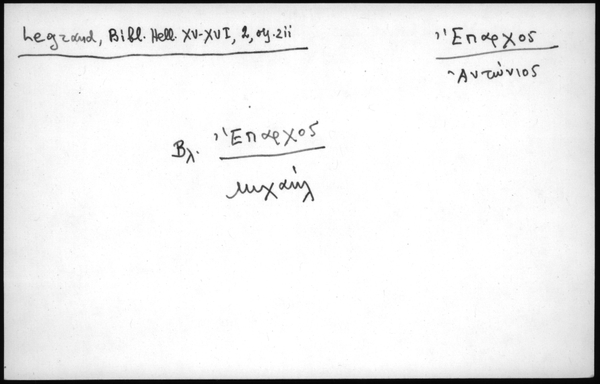 Legrand, Bibl. Hell. XV-XVI, 2, σημ. 211
Ἔπαρχος
Ἀντώνιος
Βλ. Ἔπαρχος
Μιχαήλ